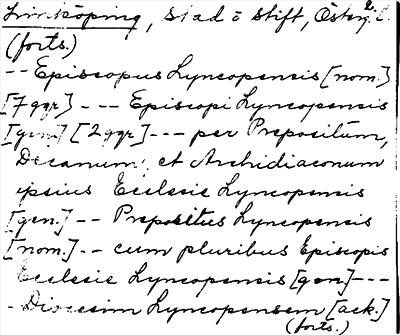 Linköping, stad o stift, Österg. l. 2.
(forts.)
-- Episcopus Lyncopensis [nom.]
[7 ggr] --- Episcopi Lyncopensis
[gen.] [2 ggr] --- per Prepositum,
Decanum, et Archidiaconum
ipsius Ecclesie Lyncopensis
[gen.] -- Prepositus Lyncopensis
[nom.] -- cum pluribus Episcopis
Ecclesie Lyncopensis [gen] ---
- Diocesim Lyncopensem [ack.]
(forts.)